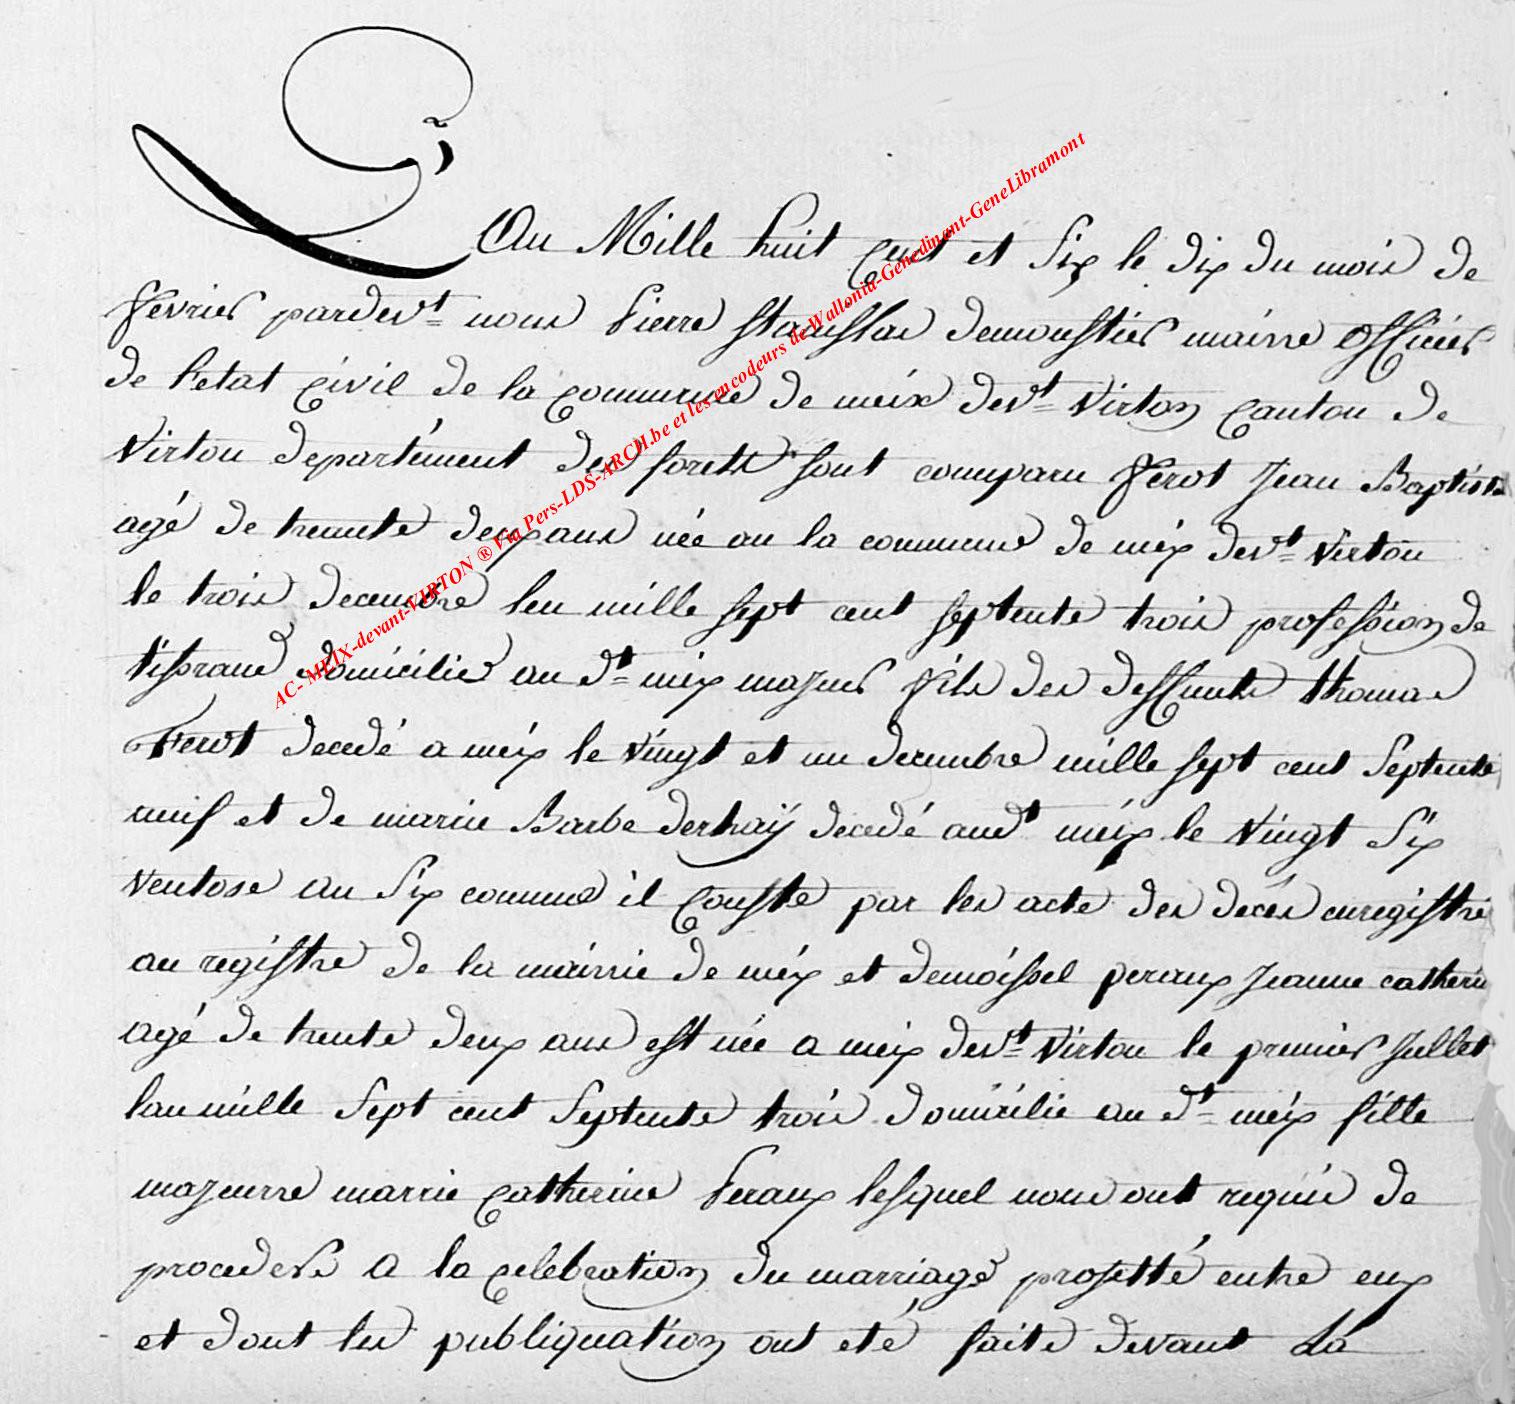 L'an Mille huit Cent et Six le dix du mois de
fevrier pardevt nous Pierre Stanislas demoustier mairre officier
de l'etat Civil de la Commune de meix devt Virton Canton de
Virton departement des forets sont comparu ferot Jean Baptiste
agé de trennte deux ans née an la commune de meix devt Virton
le trois decembre len mille sept cent septente trois profession de
tissrand domicilié au dt meix majeur fils des deffunts thomas
Ferot decedé a meix le vingt et un decembre mille sept cent septente
neuf et de marie Barbe derhaÿ decedé audt meix le vingt Six
ventose an Six comme il Conste par les acte des decés enregistré
au registre de la mairrie de meix et demoissel peraux Jeanne catherin
agé de trente deux ans est née a meix devt Virton le premier Jullet
lan mille Sept cent Septente trois domicilie au dt meix fille
majeurre marrie Catherine Peraux lesquel nous ont requis de
proceders a la Celebration du marriage projetté entre eux
et dont les publiquation ont eté faite devant La
AC- MEIX-devant-VIRTON ® Via Pers-LDS-ARCH.be et les encodeurs de Wallonia-Genedinant-GeneLibramont